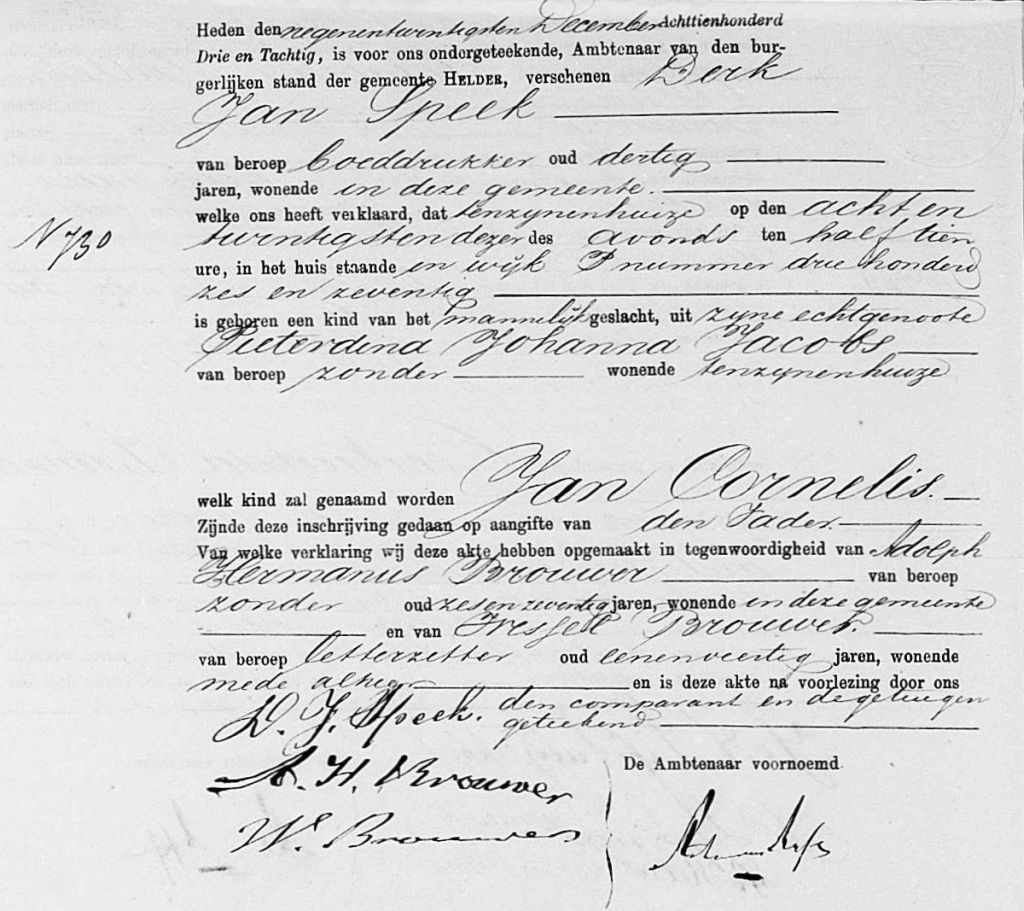 Heden den negenentwintigsten December Achttienhonderd
Drie en Tachtig, is voor ons ondergeteekende, Ambtenaar van den bur-
gerlijken stand der gemeente HELDER, verschenen Derk
Jan Speek
van beroep boeddrukker oud dertig
jaren, wonende in deze gemeente.
welke ons heeft verklaard, dat tenzynenhuize op den acht en
twintigsten dezer des avonds ten half tien
ure, in het huis staande in wijk P nummer drie honderd
zes en zeventig
N 730
is geboren een kind van het mannelijk geslacht, uit zyne echtgenoote
Pieterdina Johanna Jacobs
van beroep zonder wonende tenzynenhuize
welk kind zal genaamd worden Jan Cornelis.
Zijnde deze inschrijving gedaan op aangifte van den Vader.
Van welke verklaring wij deze akte hebben opgemaakt in tegenwoordigheid van Adolph
Hermanus Brouwer van beroep
zonder oud zes en zeventig jaren, wonende in deze gemeente
en van Brouwer.
van beroep letterzetter oud eenenveertig jaren, wonende
mede alhier. en is deze akte na voorlezing door ons
den comparant en de getuigen
geteekend
D. J. Speek.
A. H. Brouwer
De Ambtenaar voornoemd
W. Brouwer